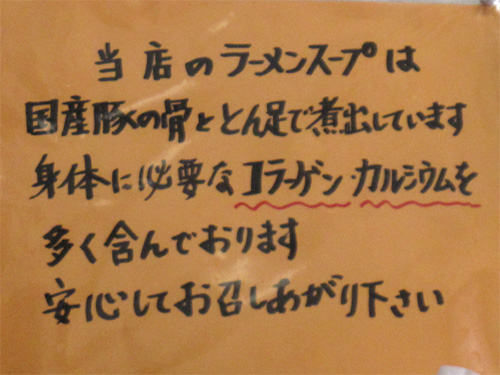 当店のラーメンスープは
国産豚の骨ととん足で煮出しています
身体に必要なコラーゲン・カルシウムを
多く含んでおります
安心してお召しあがり下さい